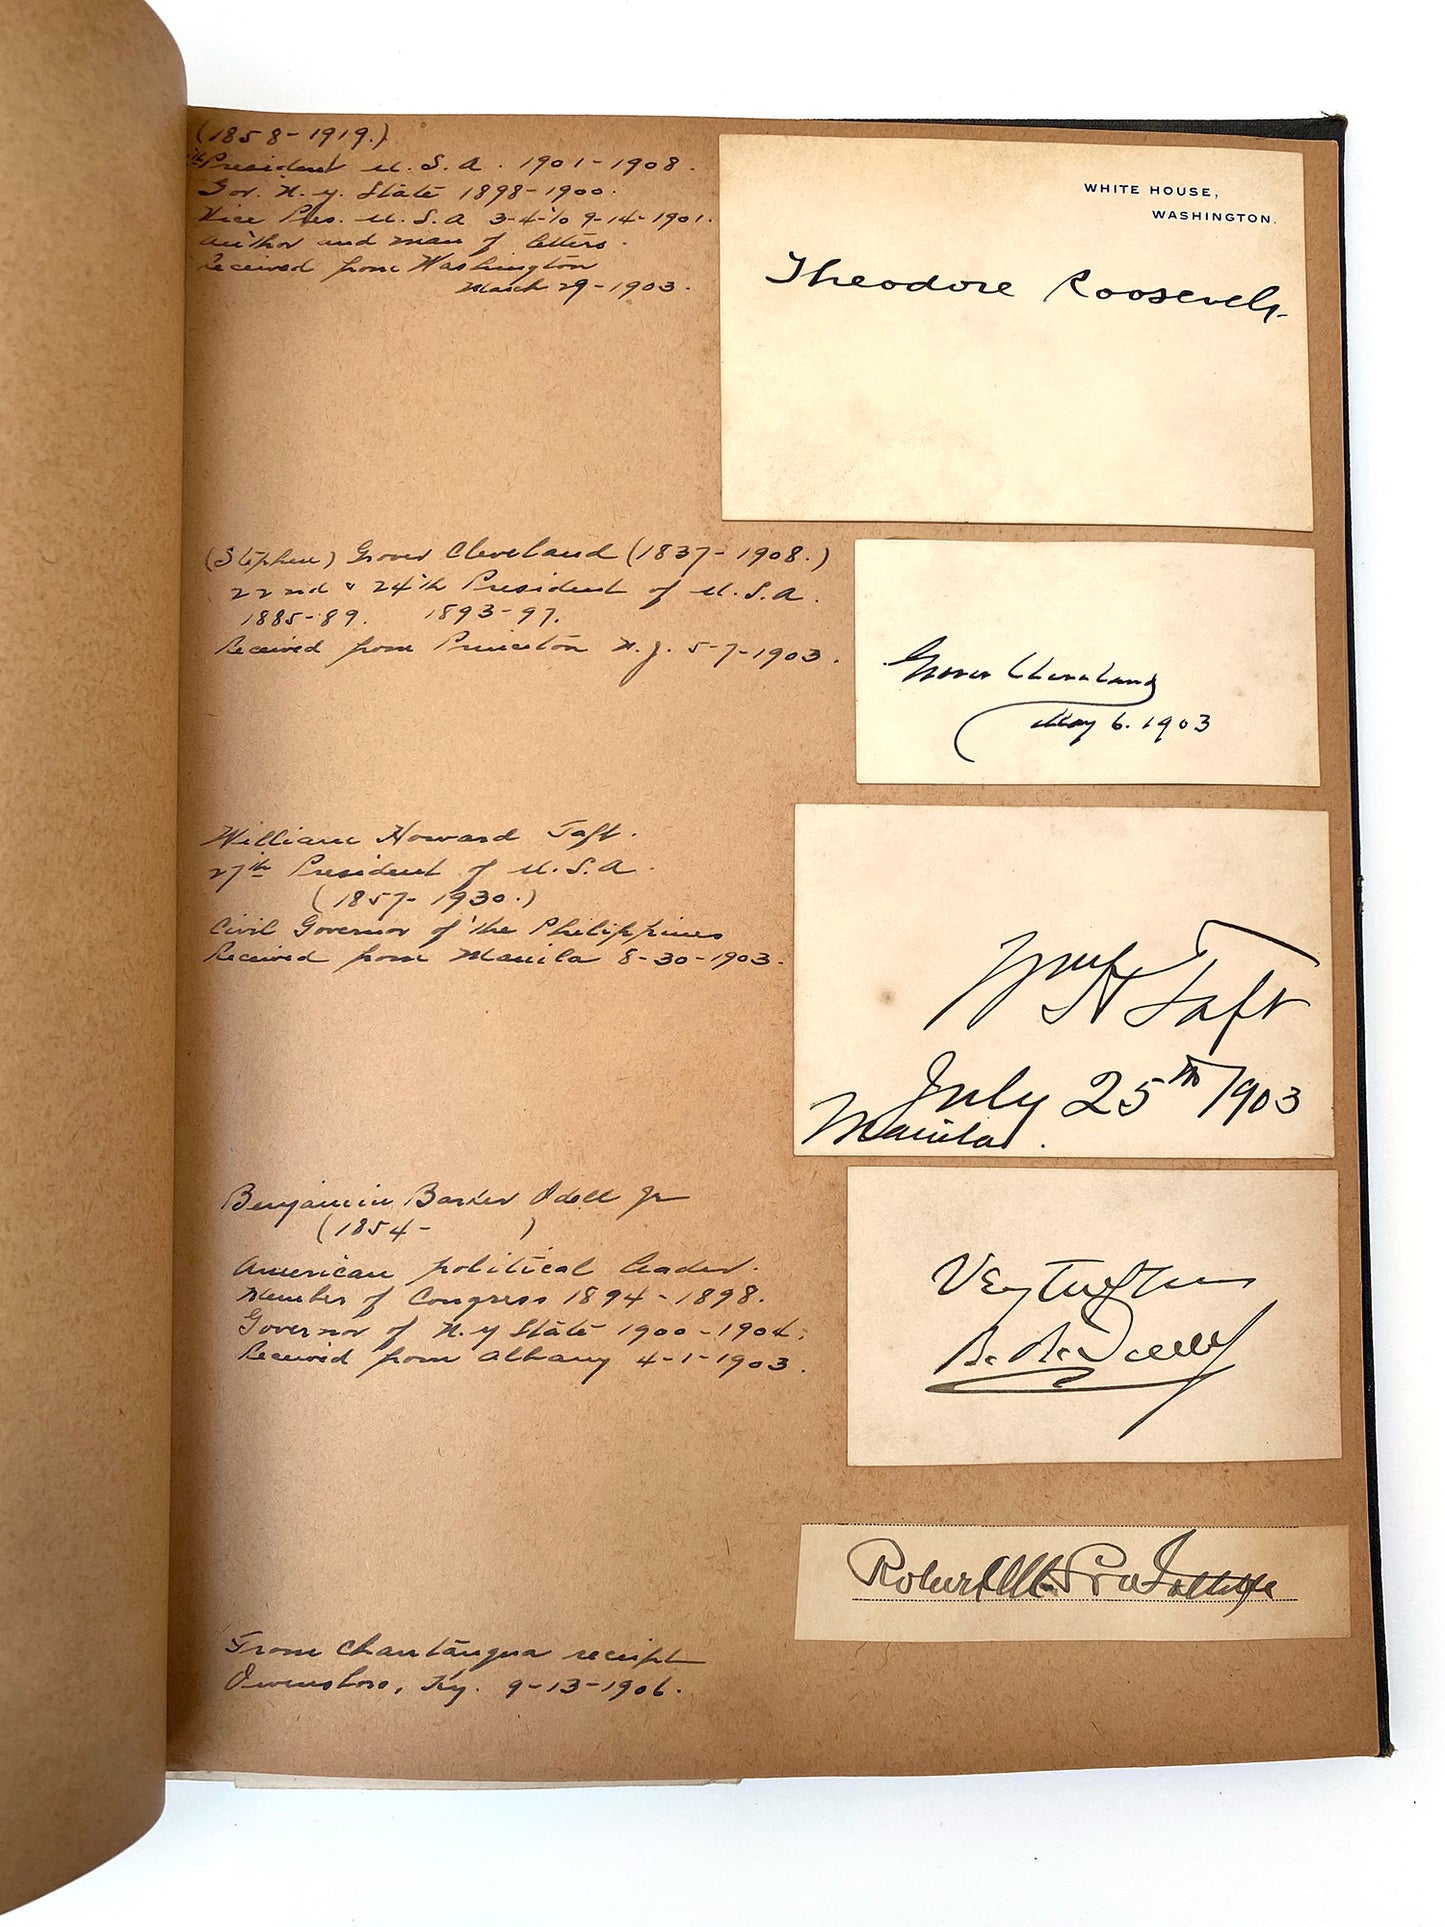 (1858-1919.)
President U.S.A. 1901-1908.
Gov. N.Y. State 1898-1900.
Vice Pres. U.S.A 3-4- to 9-14-1901.
Author and man of letters.
Received from Washington
March 29-1903.
WHITE HOUSE,
WASHINGTON.
Theodore Roosevelt
(Stephen) Grover Cleveland (1837-1908.)
22nd & 24th President of U.S.A.
1885-89. 1893-97.
Received from Princeton N.J. 5-7-1903.
Grover Cleveland
May 6. 1903
William Howard Taft.
27th President of U.S.A.
(1857-1930.)
Civil Governor of the Philippines
Received from Manila 8-30-1903.
Wm H Taft
July 25th 1903
Manila.
Benjamin Barker Odell Jr
(1854- )
American political leader.
Member of Congress 1894-1898.
Governor of N.Y State 1900-1904.
Received from Albany 4-1-1903.
B. B. Odell Jr
From Chautauqua receipt
Owensboro, Ky. 9-13-1906.